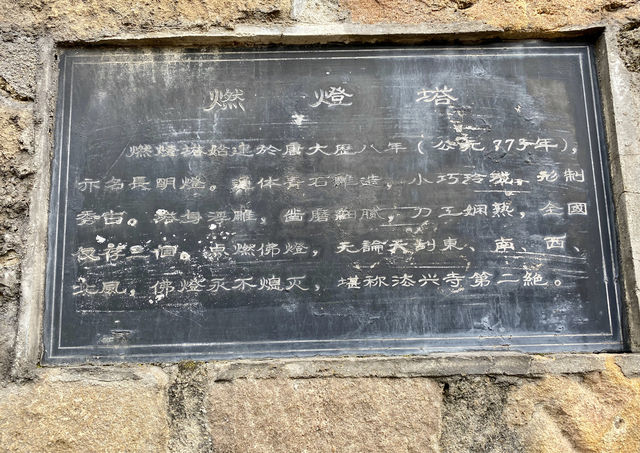 燃燈塔
燃燈塔始建於唐大歷八年(公元773年),
亦名長明燈。整体青石雕造,小巧玲瓏,形制
秀古。浮雕,凿磨細腻,刀工娴熟,全國
僅存三個。点燃佛燈,无論天刮東、南、西、
北風,佛燈永不熄灭,堪称法兴寺第二絶。